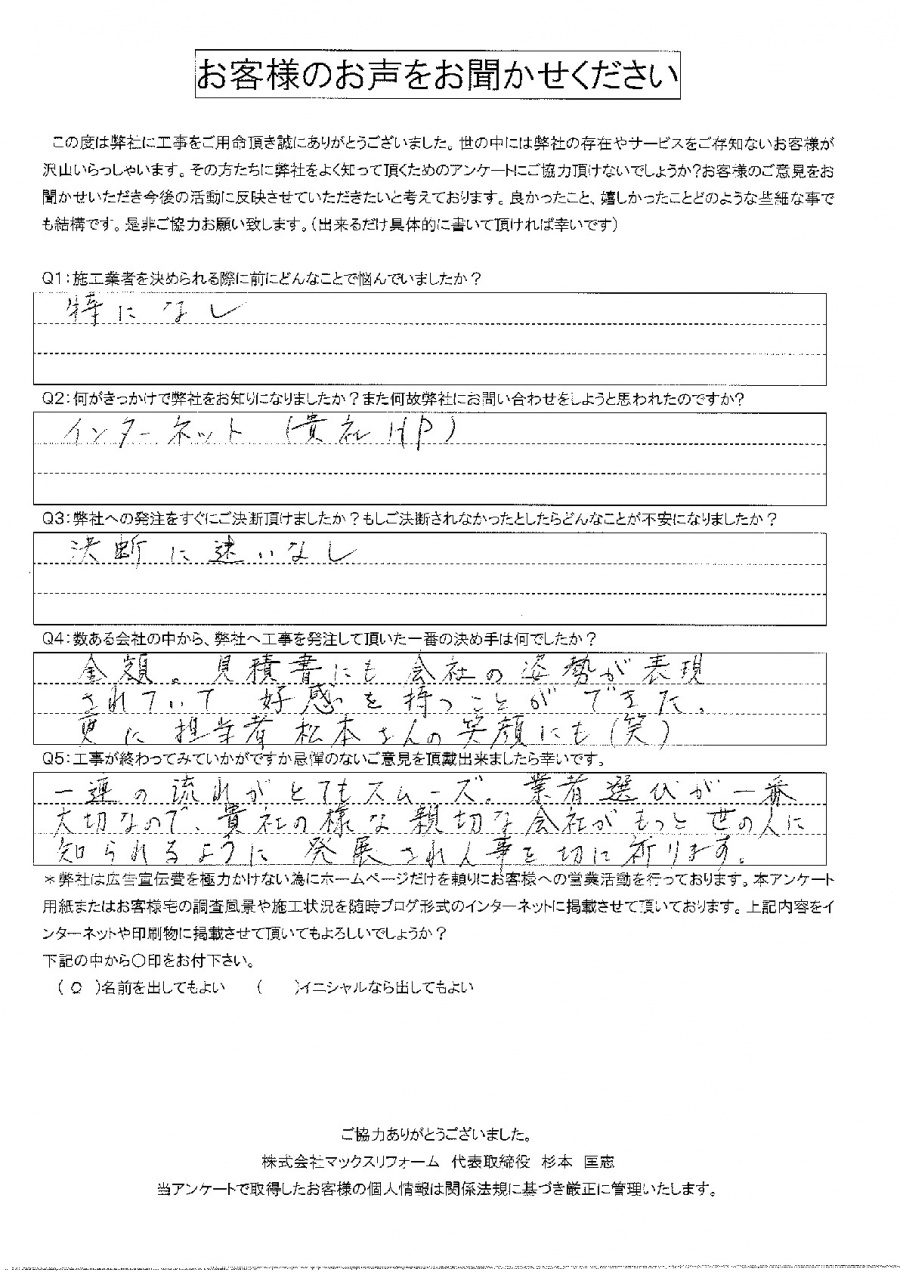 お客様のお声をお聞かせください
この度は弊社に工事をご用命頂き誠にありがとうございました。世の中には弊社の存在やサービスをご存知ないお客様が
沢山いらっしゃいます。その方たちに弊社をよく知って頂くためのアンケートにご協力頂けないでしょうか?お客様のご意見をお
聞かせいただき今後の活動に反映させていただきたいと考えております。良かったこと、嬉しかったことどのような些細な事で
も結構です。是非ご協力お願い致します。(出来るだけ具体的に書いて頂ければ幸いです)
Q1:施工業者を決められる際に前にどんなことで悩んでいましたか?
特になし
Q2:何がきっかけで弊社をお知りになりましたか?また何故弊社にお問い合わせをしようと思われたのですか?
インターネット (貴社HP)
Q3:弊社への発注をすぐにご決断頂けましたか?もしご決断されなかったとしたらどんなことが不安になりましたか?
決断に迷いなし
Q4:数ある会社の中から、弊社へ工事を発注して頂いた一番の決め手は何でしたか?
金額。見積書にも会社の姿勢が表現
されていて 好感を持つことができた。
更に担当者松本さんの笑顔にも(笑)
Q5:工事が終わってみていかがですか忌憚のないご意見を頂戴出来ましたら幸いです。
一連の流れがとてもスムーズ。業者選びが一番
大切なので、貴社の様な親切な会社がもっと世の人に
知られるように発展され人事を切に祈ります。
*弊社は広告宣伝費を極力かけない為にホームページだけを頼りにお客様への営業活動を行っております。本アンケート
用紙またはお客様宅の調査風景や施工状況を随時ブログ形式のインターネットに掲載させて頂いております。上記内容をイ
ンターネットや印刷物に掲載させて頂いてもよろしいでしょうか?
下記の中から○印をお付下さい。
(○)名前を出してもよい ( )イニシャルなら出してもよい
ご協力ありがとうございました。
株式会社マックスリフォーム 代表取締役 杉本 匡志
当アンケートで取得したお客様の個人情報は関係法規に基づき厳正に管理いたします。